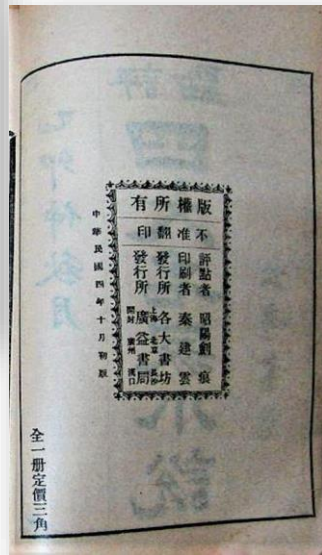 版權所有
不准翻印
評點者 昭陽劍痕
印刷者 秦建雲
發行所 各大書坊
上海 北京 長沙
發行所 廣益書局
開封 廣州 漢口
中華民國四年十月初版
全一册定價三角